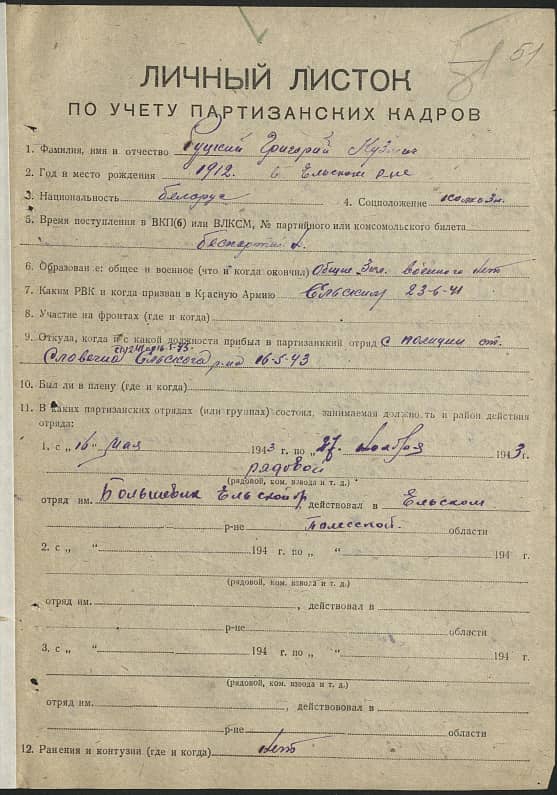 51
ЛИЧНЫЙ ЛИСТОК
ПО УЧЕТУ ПАРТИЗАНСКИХ КАДРОВ
1. Фамилия, имя и отчество Руцкий Григорий
2. Год и место рождения 1912. в Ельском р-не
3. Национальность белорус 4. Соцположение колхозн.
5. Время поступления в ВКП(б) или ВЛКСМ, № партийного или комсомольского билета
беспартийн.
6. Образование: общее и военное (что и когда окончил) Общие 3 кл. военного нет
7. Каким РВК и когда призван в Красную Армию Ельским 23-6-41
8. Участие на фронтах (где и когда)
9. Откуда, когда и с какой должности прибыл в партизанский отряд с полиции
Словечно Ельского р-на 16-5-43
10. Был ли в плену (где и когда)
11. В каких партизанских отрядах (или группах) состоял, занимаемая должность и район действия
отряда:
1. с „ 16 “ мая 1943 г. по „ 27 “ ноября 1943 г.
рядовой
(рядовой, ком. взвода и т. д.)
отряд им. Большевик действовал в Ельском
р-не Полесской области
2. с „ “ 194 г. по „ “ 194 г.
(рядовой, ком. взвода и т. д.)
отряд им. , действовал в
р-не области
3. с „ “ 194 г. по „ “ 194 г.
(рядовой, ком. взвода и т. д.)
отряд им. , действововал в
р-не области
12. Ранения и контузии (где и когда) нет